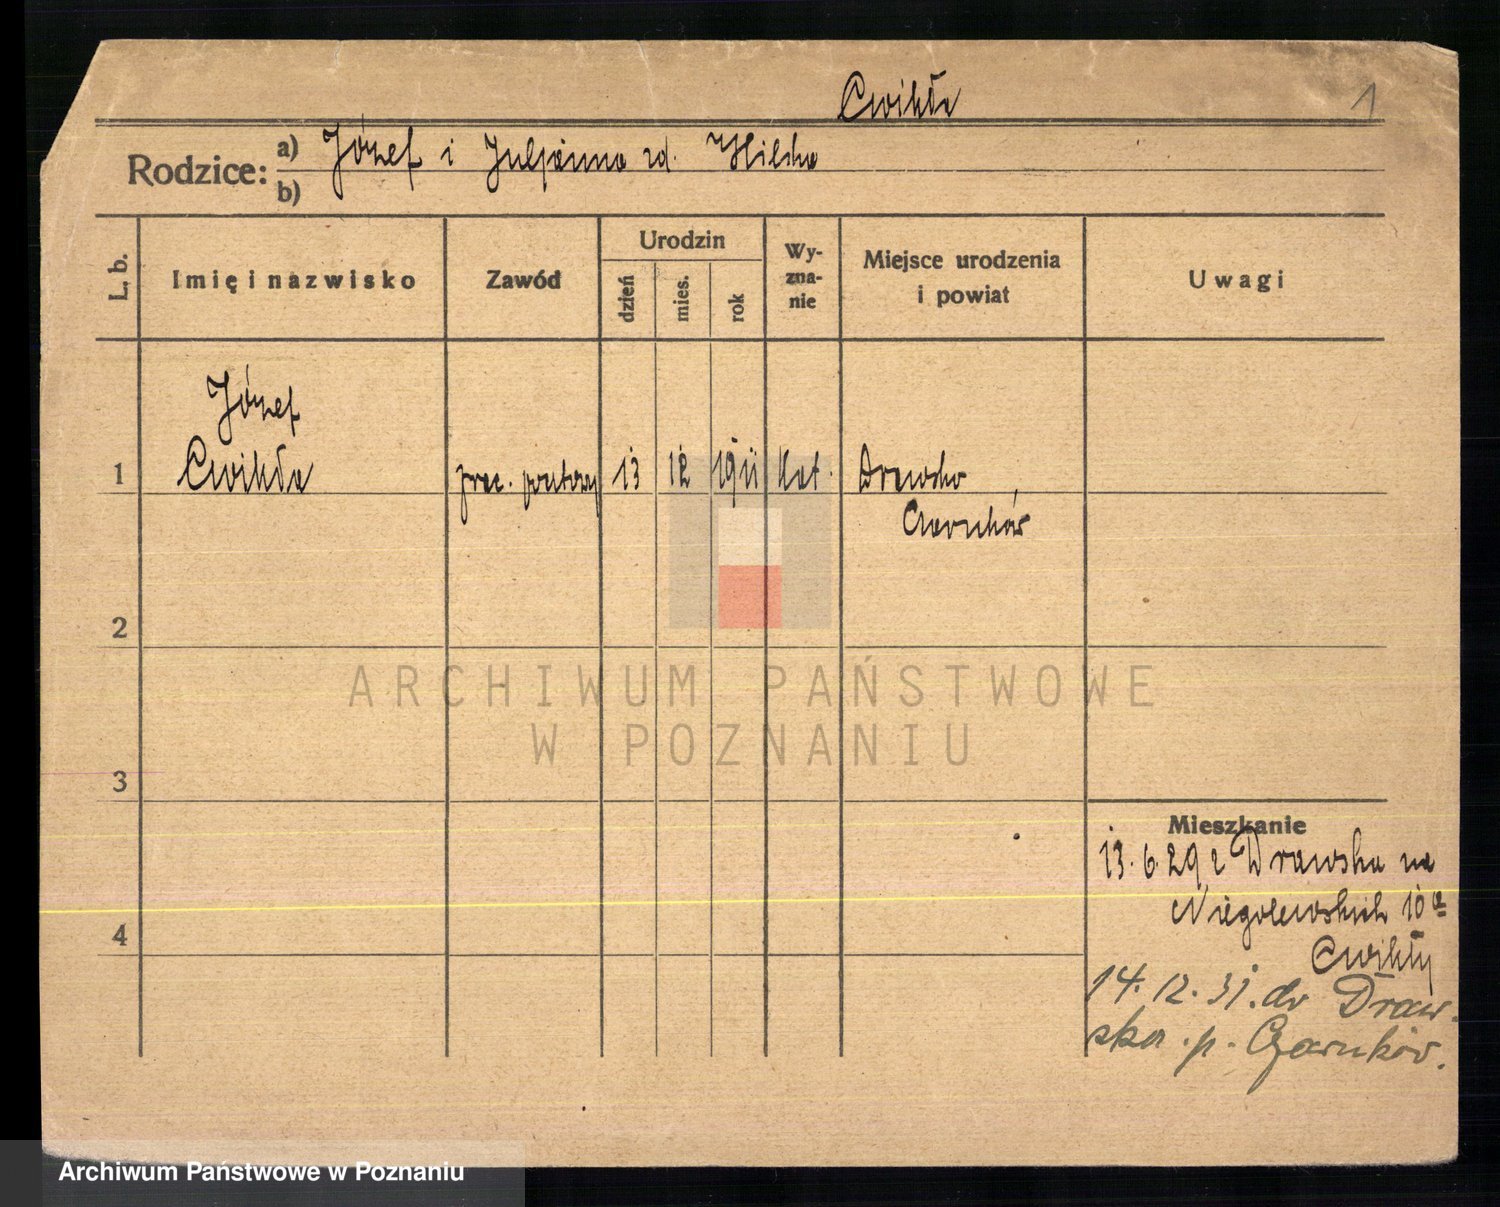 Cwikła
1
Rodzice: a) Józef i Juljanna zd. Hilska
b)
L. b.
Imię i nazwisko
Zawód
Urodzin
dzień
mies.
rok
Wy-
zna-
nie
Miejsce urodzenia
i powiat
Uwagi
Józef
1 Cwikła prac. 13 12 1911 kat. Drawsko
Czarnków
2
ARCHIWUM PAŃSTWOWE
W POZNANIU
3
Mieszkanie
13.6.29 z Drawska na
Niegolewskich 10a
4
Cwikły
14.12.31. do Draw.
ska. p. Czarnków.
Archiwum Państwowe w Poznaniu